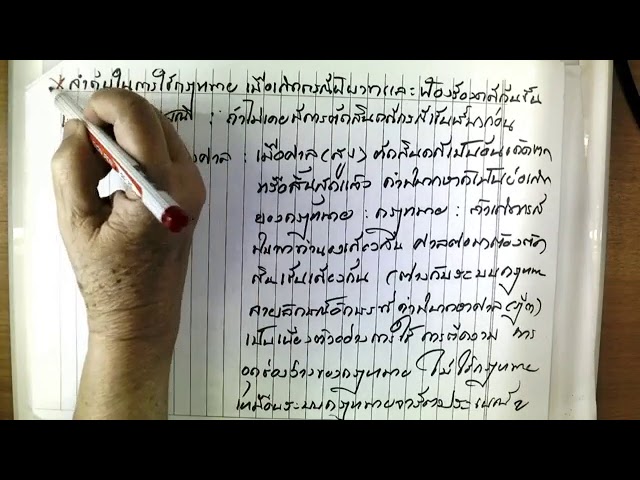 ลำดับในการใช้กฎหมาย เมื่อเกิดกรณีพิพาทและฟ้องร้องคดีกันขึ้น
: ถ้าไม่เคยมีการตัดสินคดีกรณีเช่นนี้มาก่อน
ศาล : เมื่อศาล (สูง) ตัดสินคดีเป็นอันเด็ดขาด
หรือสิ้นสุดแล้ว คำพิพากษาก็เป็นบ่อเกิด
ของกฎหมาย : กฎหมาย : ถ้าเกิดกรณี
ศาลต่อมาต้องตัด
สินเช่นเดียวกัน (ต่างกับระบบกฎหมาย
ลายลักษณ์อักษร คำพิพากษาศาล (ฎีกา)
เป็นเพียงตัวอย่างการใช้ การตีความ การ
อุดช่องว่างของกฎหมาย ไม่ใช่กฎหมาย
เหมือนระบบกฎหมายจารีตประเพณี)